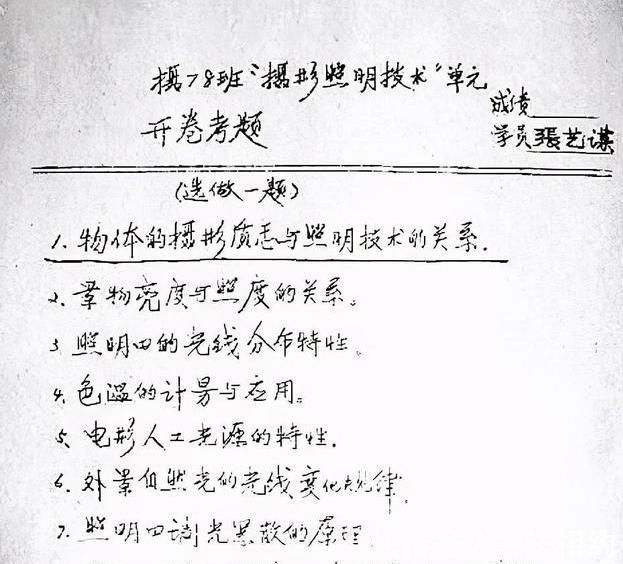 摄78班“摄影照明技术”单元
成绩
开卷考题
学员 張艺谋
(选做一题)
1. 物体的摄影质态与照明技术的关系.
2. 景物亮度与照度的关系。
3 照明的光线分布特性。
4. 色温的计算与应用。
5. 电影人工光源的特性.
6. 外景自然光的光线变化规律
7. 照明 光 散的原理